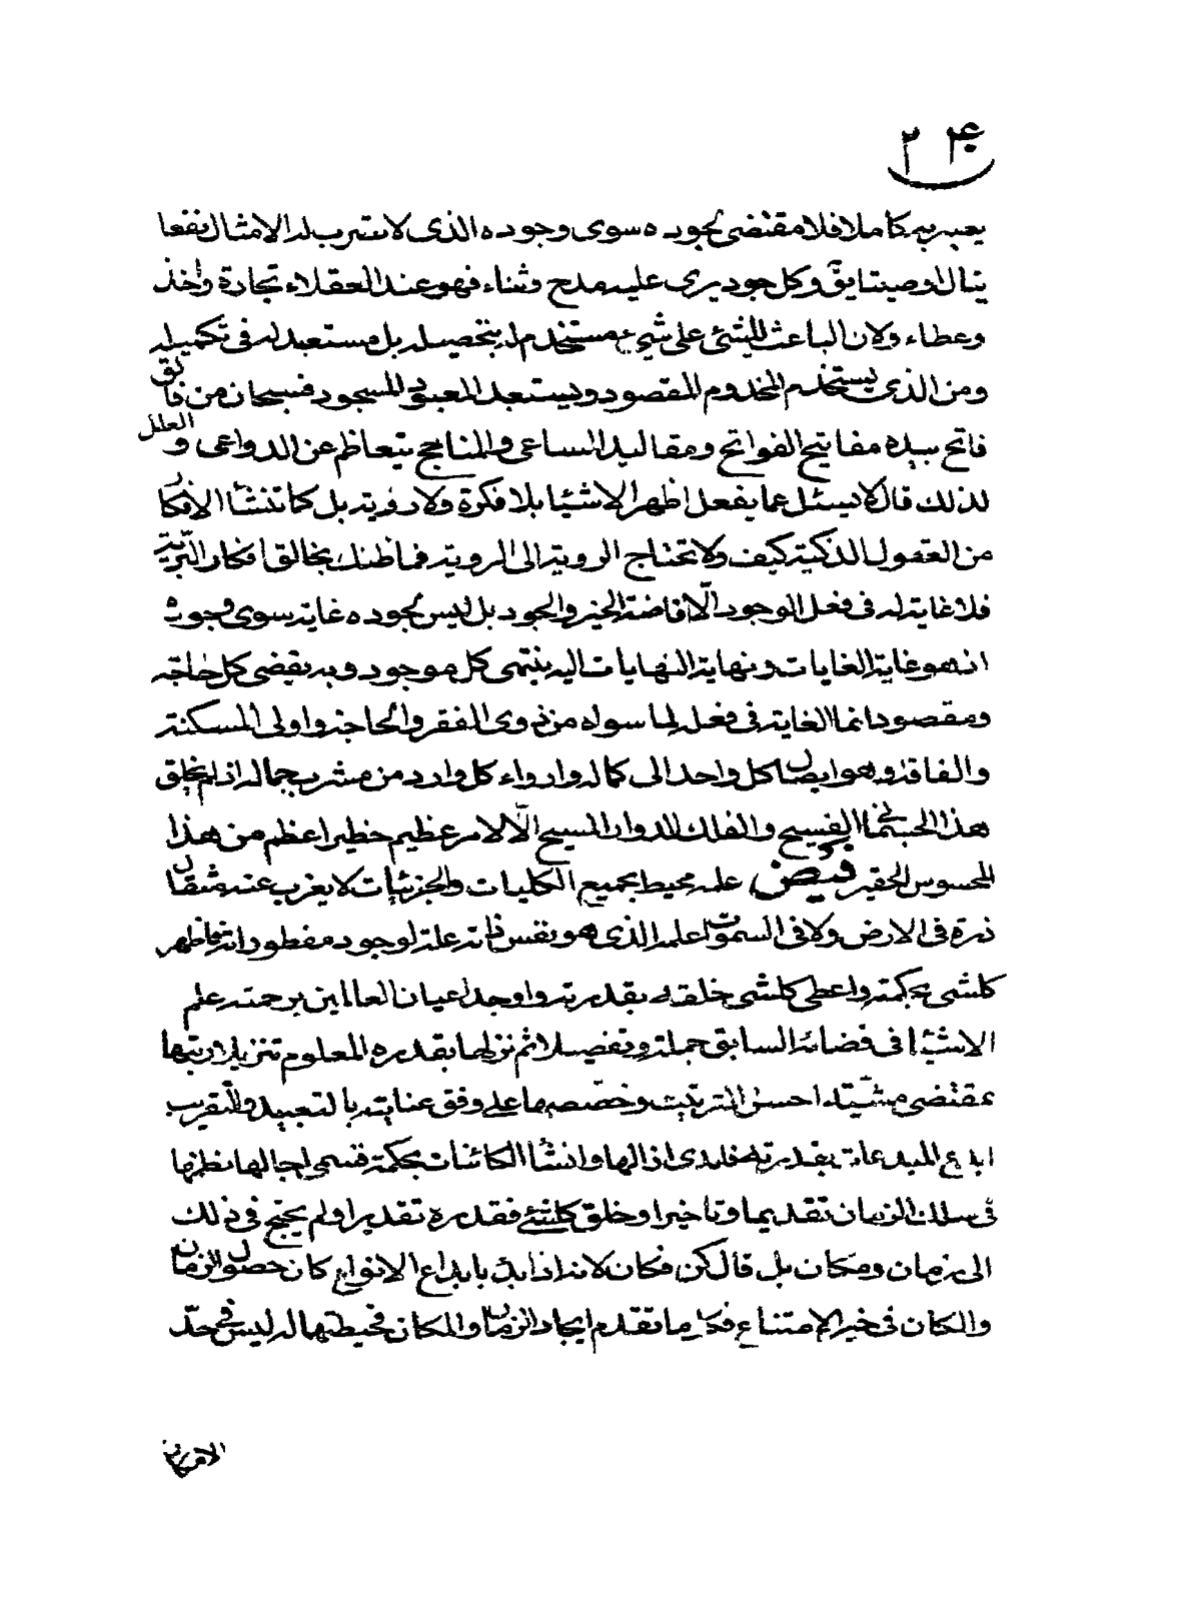 يصير به كاملا فلا مقتضى لجوده سوى وجوده الذى لا تضرب له الامثال نفعا
ينال او صيتا يبقى وكل جود يرى عليه مدح وثناء فهو عند العقلاء تجارة واخذ
وعطاء ولان الباعث للشئ على شئ مستخدم له بتحصيله بل مستعبد له فى تكميله
ومن الذى يستخدم المخدوم المقصود ويستعبد المعبود المسجود فسبحان من خالق
فاتح بيده مفاتيح الفواتح ومقاليد المساعى والمناجح يتعاظم عن الدواعى و العلل
لذلك قال لا يسئل عما يفعل اظهر الاشيا بلا فكرة ولا روية بل كما تنشأ الافكار
من العقول الذكية كيف ولا تحتاج الروية الى الروية فما ظنك بخالق افكار البرية
فلا غاية له فى فعل الوجود الّا افاضة الخير والجود بل ليس لجوده غاية سوى وجوده
انه هو غاية الغايات ونهاية النهايات اليه ينتهى كل موجود وبه يقضى كل حاجة
ومقصود انما الغاية فى فعله لما سواه من ذوى الفقر والحاجة واولى المسكنة
والفاقة وهو ايصال كل واحد الى كماله وارواء كل وارد من مشرب جماله اذ لم يخلق
هذا الجسم الفسيح والفلك الدوار المسيح الّا لامر عظيم خطير اعظم من هذا
المحسوس الحقير فيض علمه محيط بجميع الكليات والجزئيات لا يعزب عنه مثقال
ذرة فى الارض ولا فى السموات علمه الذى هو نفس ذاته علة لوجود مفطوراته فاظهر
كلشى بحكمته واعطى كلشى خلقه بقدرته واوجد اعيان العالمين برحمته علم
الاشيا فى قضائه السابق جملة وتفصيلا ثم نزلها بقدره المعلوم تنزيلا ورتبها
بمقتضى مشيّته احسن الترتيب وخصّصها على وفق عنايته بالتبعيد والتقريب
ابدع المبدعات بقدرته فابدى ازالها وانشأ الكائنات بحكمته فسمى اجالها نظمها
فى سلك الزمان تقديما وتاخيرا وخلق كلشئ فقدره تقديرا ولم يحتج فى ذلك
الى زمان ومكان بل قال كن فكان لانه اذا بدئ بابداع الانواع كان حصول الزمان
والمكان فى خير الامتناع فكل ما تقدم ايجاد الزمان والمكان فحيطتهما له ليس فى حدّ
الامكان